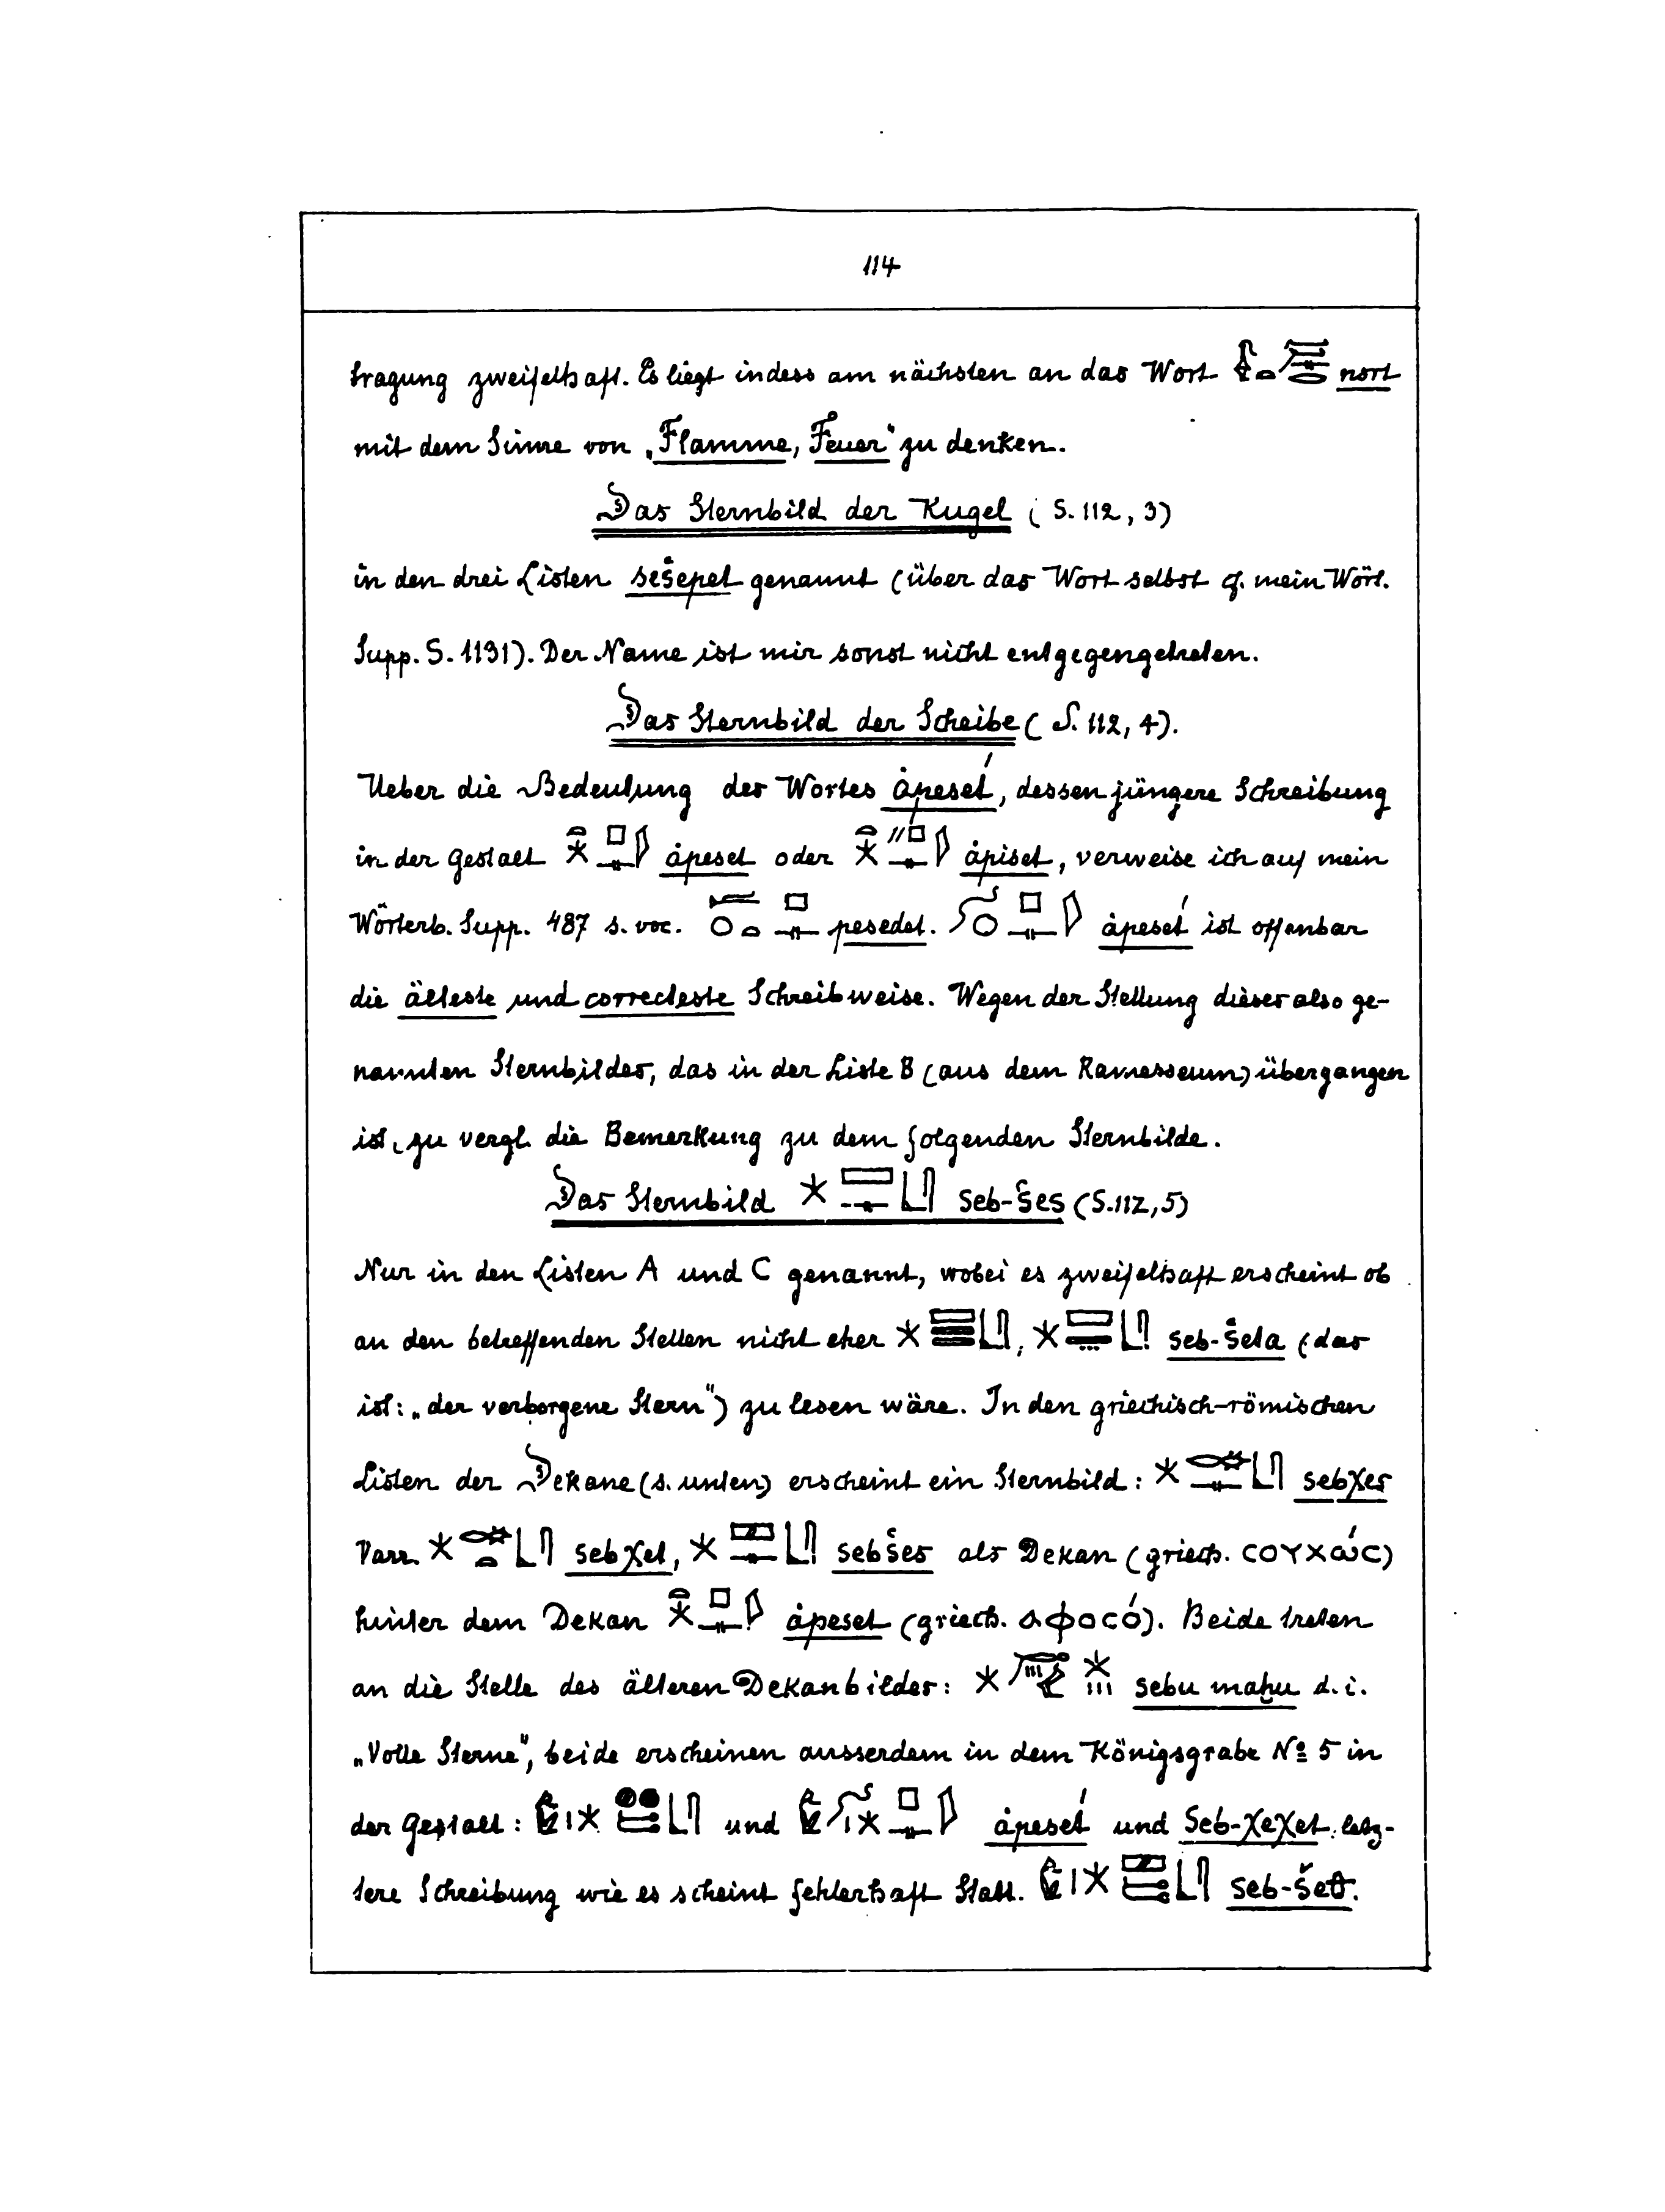 114
tragung zweifelhaft. Es liegt indess am nächsten an das Wort nsrt
mit dem Sinne von „Flamme, Feuer“ zu denken.
Das Sternbild der Kugel (S. 112, 3)
in den drei Listen sešepet genannt (über das Wort selbst cf. mein Wört.
Supp. S. 1131). Der Name ist mir sonst nicht entgegengetreten.
Das Sternbild der Scheibe (S. 112, 4).
Ueber die Bedeutung des Wortes ȧpeset́, dessen jüngere Schreibung
in der Gestalt ȧpeset oder ȧpiset, verweise ich auf mein
Wörterb. Supp. 487 s. voc. pesedet. ȧpeset́ ist offenbar
die älteste und correcteste Schreibweise. Wegen der Stellung dieses also ge-
nannten Sternbildes, das in der Liste B (aus dem Ramesseum) übergangen
ist, zu vergl. die Bemerkung zu dem folgenden Sternbilde.
Das Sternbild seb-šes (S. 112, 5)
Nur in den Listen A und C genannt, wobei es zweifelhaft erscheint ob
an den betreffenden Stellen nicht eher , seb-šeta (das
ist: „der verborgene Stern“) zu lesen wäre. In den griechisch-römischen
Listen der Dekane (s. unten) erscheint ein Sternbild: sebχes
Varr. sebχet, sebšes als Dekan (griech. ⲤⲞⲨⲬⲰ́Ⲥ)
hinter dem Dekan ȧpeset (griech. ⲀⲪⲞⲤⲞ́). Beide treten
an die Stelle des älteren Dekanbildes: sebu maḥu d. i.
„Volle Sterne“, beide erscheinen ausserdem in dem Königsgrabe Nº 5 in
der Gestalt: und ȧpeset́ und Seb-χeχet, letz-
tere Schreibung wie es scheint fehlerhaft statt. seb-šeθ.